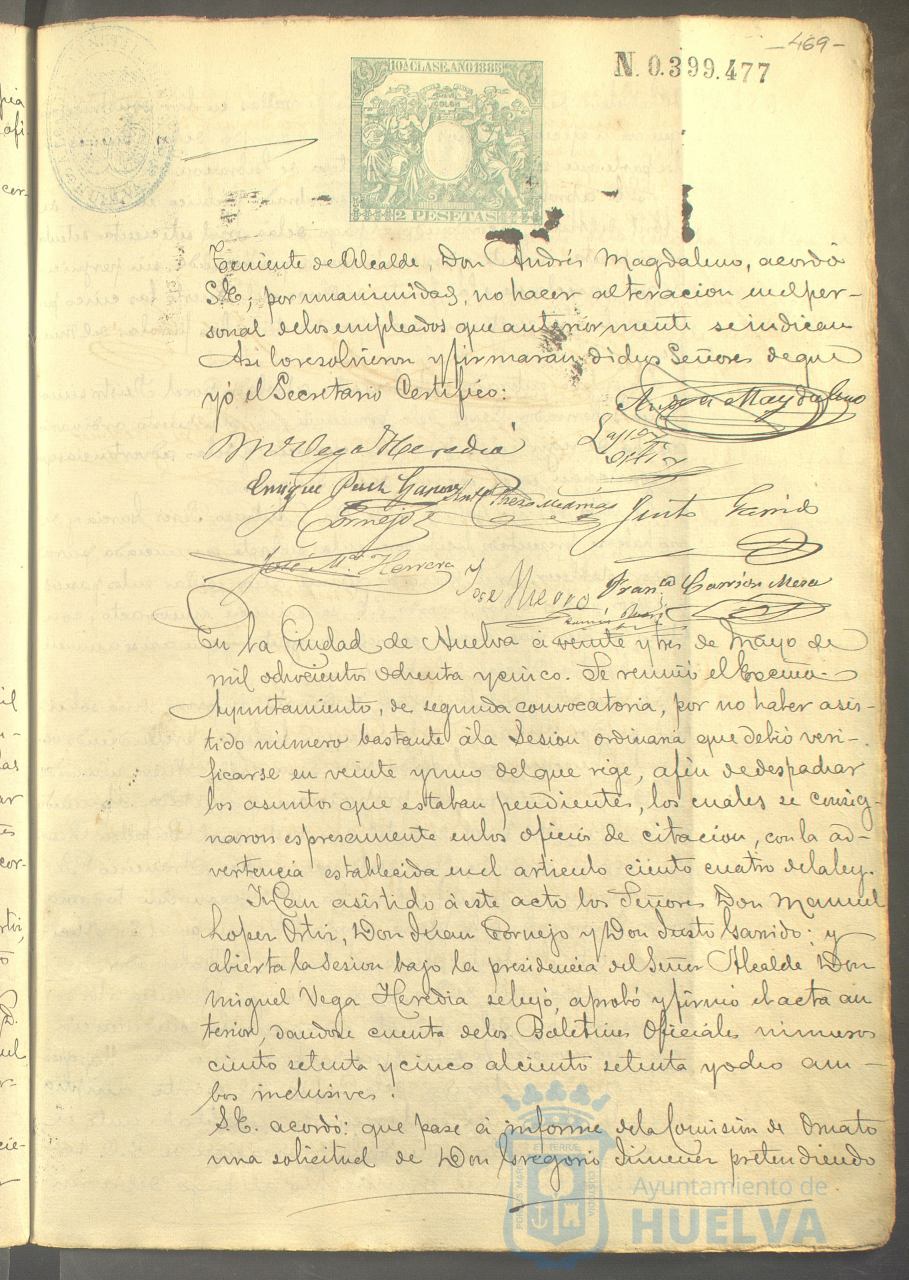 -469-
N. 0.399.477
10ª CLASE. AÑO 1885
COLON
2 PESETAS
Teniente de Alcalde, Don Andrés Magdaleno, acordó
S.E; por unanimidad, no hacer alteracion en el per-
sonal de los empleados que anteriormente se indican
Asi lo resolvieron y firmaran dichos Señores de que
yó el Secretario Certifico:
Andrés Magdaleno
Mˡ Vega Heredia
Enrique Perez
Cornejo
Justo Garrido
José Mª Herrera
José
Franᶜᵒ Carrion Mera
En la Ciudad de Huelva á veinte y tres de Mayo de
mil ochocientos ochenta y cinco. Se reunió el Excmo.
Ayuntamiento, de segunda convocatoria, por no haber asis-
tido número bastante á la Sesion ordinaria que debió veri-
ficarse en veinte y uno del que rige, afin de despachar
los asuntos que estaban pendientes, los cuales se consig-
naron espresamente en los oficios de citacion, con la ad-
vertencia establecida en el articulo ciento cuatro de la ley.
Han asistido á este acto los Señores Don Manuel
Lopez Ortiz, Don Juan Cornejo y Don Justo Garrido; y
abierta la Sesion bajo la presidencia del Señor Alcalde Don
Miguel Vega Heredia se leyó, aprobó y firmó el acta an
terior, dandose cuenta de los Boletines Oficiales números
ciento setenta y cinco al ciento setenta y ocho am-
bos inclusives.
S.E. acordó: que pase á informe de la Comisión de Ornato
una solicitud de Don Gregorio Jimenez pretendiendo
Ayuntamiento de
HUELVA